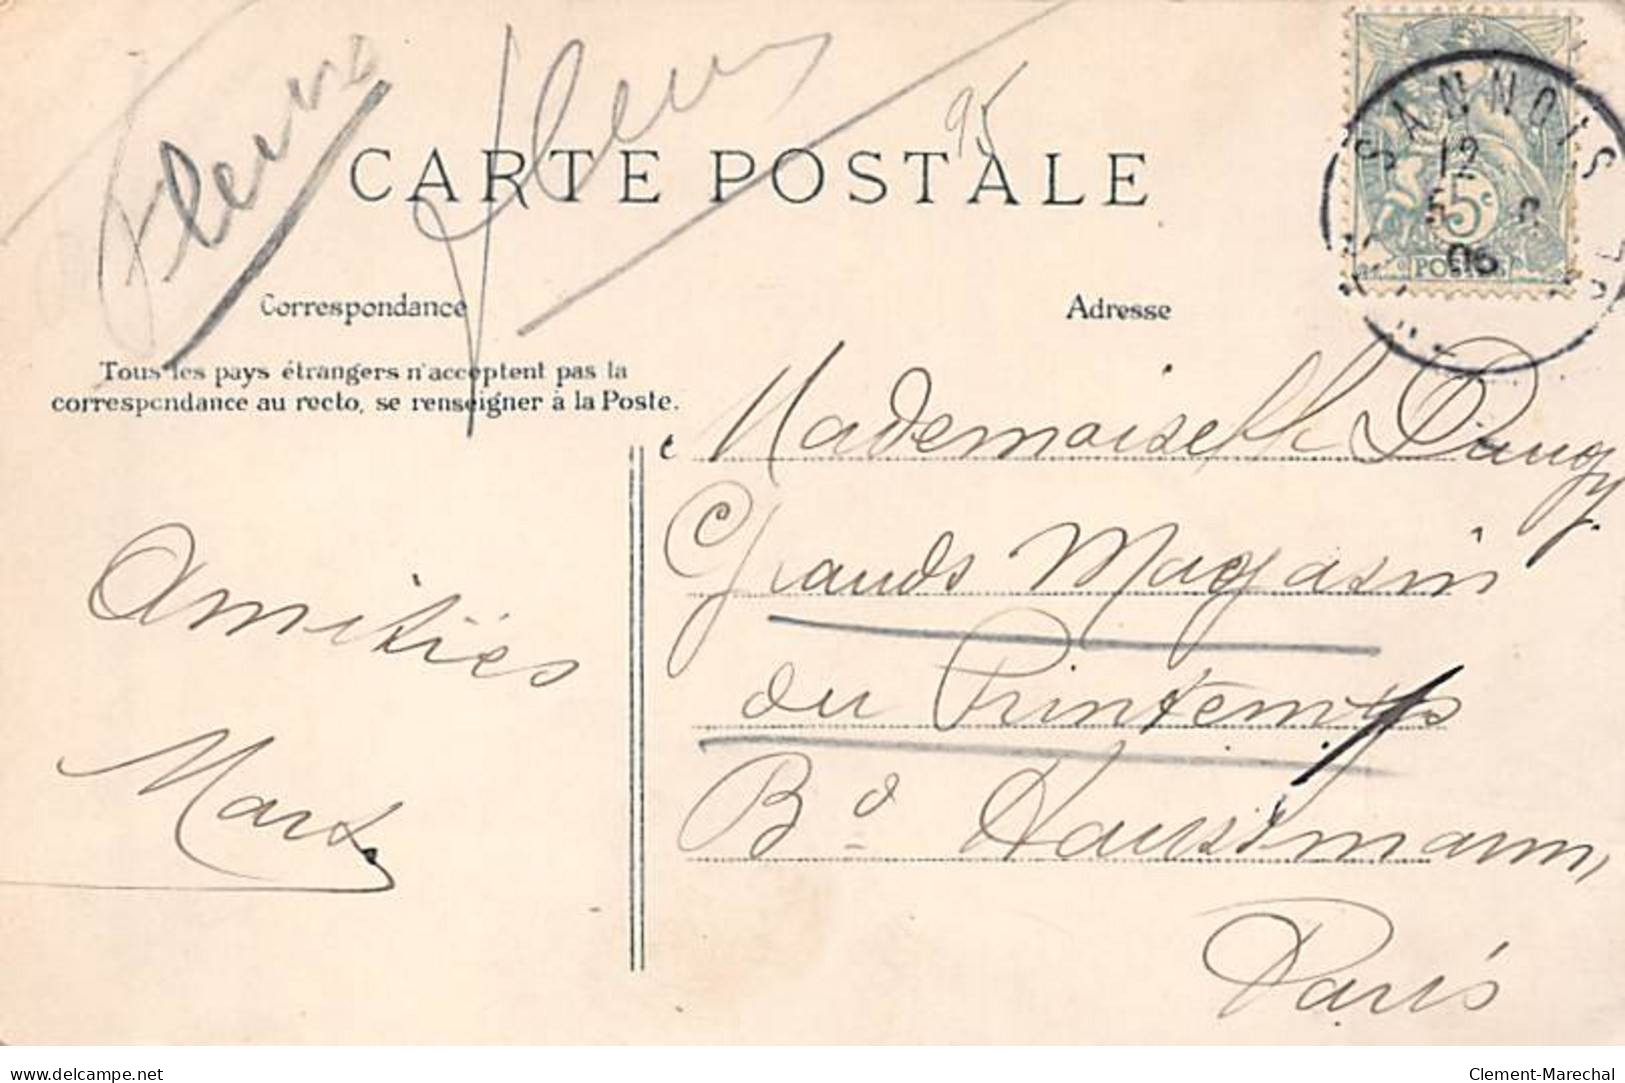 Fleurs
Fleurs
95
CARTE POSTALE
SANNOIS
12
5
06
5c
POSTES
Correspondance
Adresse
Tous les pays étrangers n'acceptent pas la
correspondance au recto, se renseigner à la Poste.
Mademoiselle
Grands Magasin
du Printemps
Bd Haussmann,
Paris
Amitiés
delcampe.net
Clement-Marechal